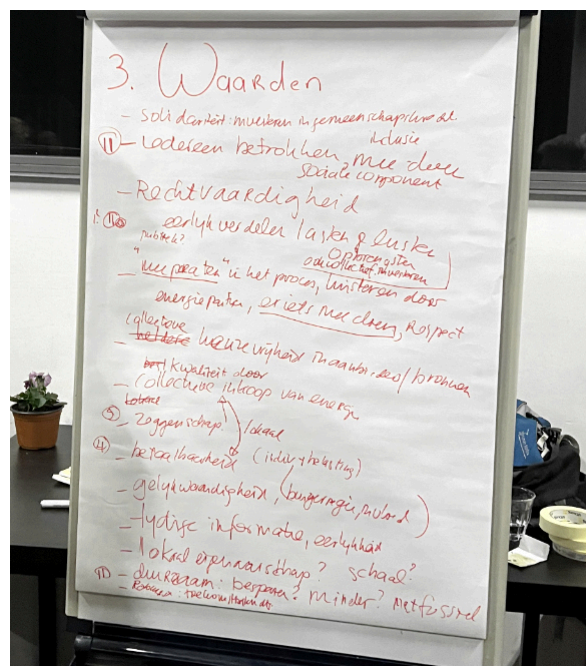 3. Waarden
- solidariteit: investeren in gemeenschap
inclusie
11 - iedereen betrokken, mee doen
sociale component
- Rechtvaardigheid
eerlijk verdelen lasten & lusten
publiek?
opbrengsten
ook collectief investeren
- "meepraten" in het proces, luisteren door
energie, er iets mee doen, Respect
collectieve
- keuzevrijheid in aanbieders/bronnen
kwaliteit door
- collectieve inkoop van energie
5 - zeggenschap lokaal
- betaalbaarheid
- gelijkwaardigheid,
- tijdige informatie, eerlijkheid
- lokaal eigenaarschap? schaal?
- duurzaam: besparen? minder? niet fossiel